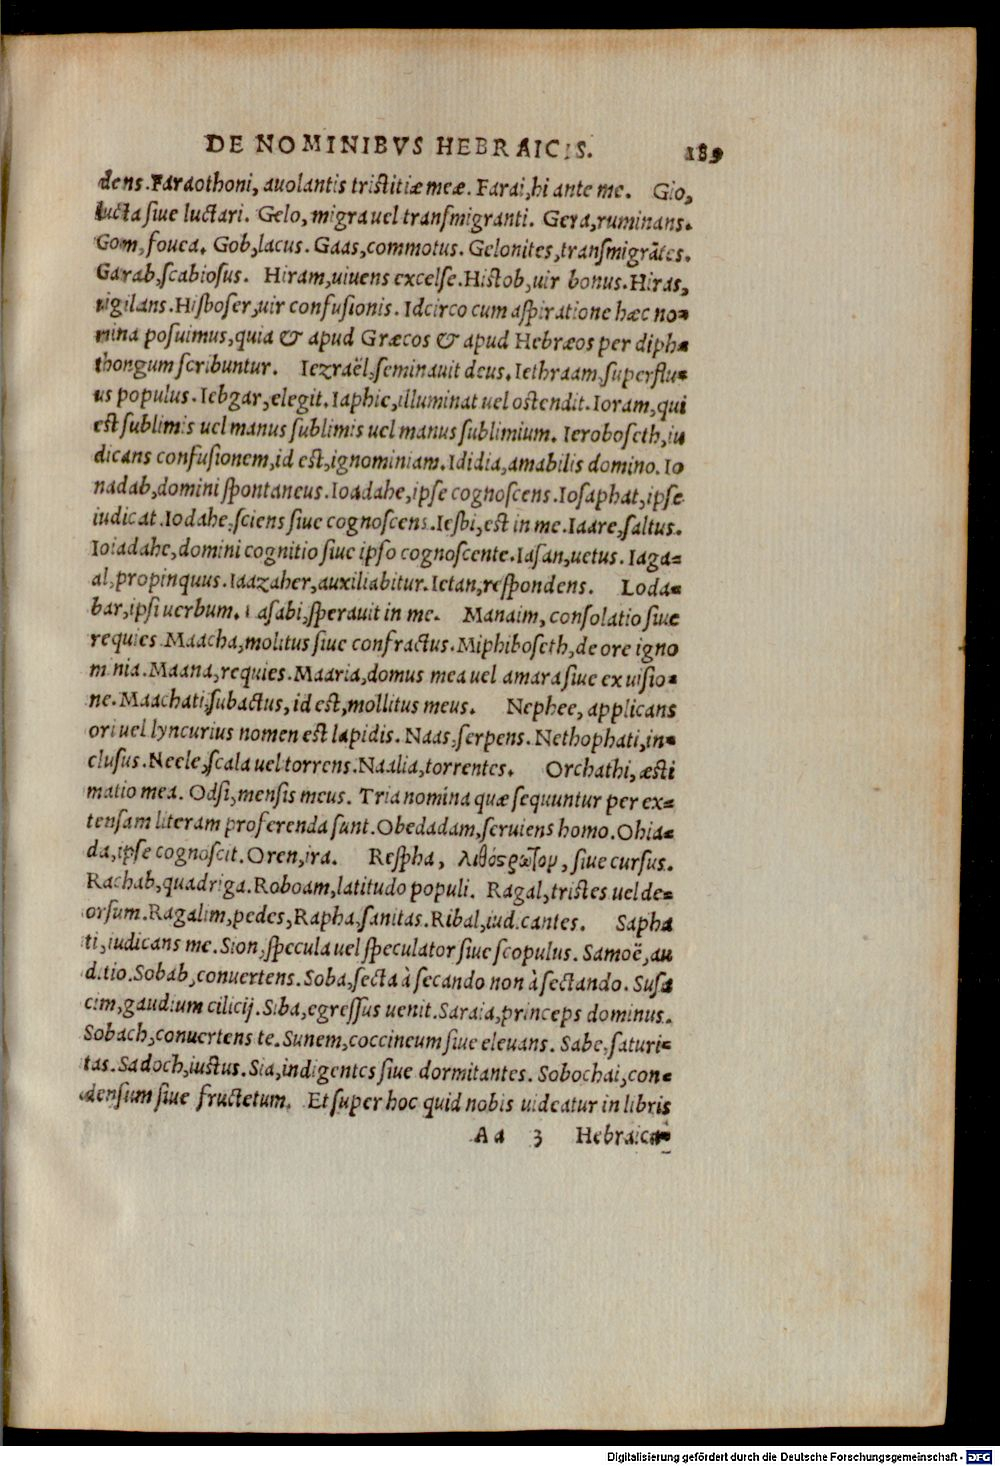 DE NOMINIBVS HEBRAICIS. 189
dens. Faraothoni, auolantis tristitiæ meæ. Farai, hi ante me. Gio,
lucta siue luctari. Gelo, migra uel transmigranti. Gera, ruminans.
Gom, fouea. Gob, lacus. Gaas, commotus. Gelonites, transmigrãtes.
Garab, scabiosus. Hiram, uiuens excelse. Histob, uir bonus. Hiras,
uigilans. Hisboser, uir confusionis. Idcirco cum aspiratione hæc no-
mina posuimus, quia & apud Græcos & apud Hebræos per diph-
thongum scribuntur. Iezraël, seminauit deus. Iethraam, superflu-
us populus. Iebgar, elegit. Iaphie, illuminat uel ostendit. Ioram, qui
est sublimis uel manus sublimis uel manus sublimium. Ieroboseth, iu
dicans confusionem, id est, ignominiam. Ididia, amabilis domino. Io
nadab, domini spontaneus. Ioadahe, ipse cognoscens. Iosaphat, ipse
iudicat. Iodahe, sciens siue cognoscens. Iesbi, est in me. Iaare, saltus.
Ioiadahe, domini cognitio siue ipso cognoscente. Iasan, uetus. Iaga-
al, propinquus. Iaazaher, auxiliabitur. Ietan, respondens. Loda-
bar, ipsi uerbum. asabi, sperauit in me. Manaim, consolatio siue
requies. Maacha, molitus siue confractus. Miphiboseth, de ore igno
minia. Maana, requies. Maaria, domus mea uel amara siue ex uisio-
ne. Maachati, subactus, id est, mollitus meus. Nephee, applicans
ori uel lyncurius nomen est lapidis. Naas, serpens. Nethophati, in-
clusus. Neele, scala uel torrens. Naalia, torrentes. Orchathi, æsti
matio mea. Odsi, mensis meus. Tria nomina quæ sequuntur per ex-
tensam literam proferenda sunt. Obedadam, seruiens homo. Ohia-
da, ipse cognoscit. Oren, ira. Respha, λιθόςρωτον, siue cursus.
Rachab, quadriga. Roboam, latitudo populi. Ragal, tristes uel de-
orsum. Ragalim, pedes, Rapha, sanitas. Ribal, iudicantes. Sapha
ti, iudicans me. Sion, specula uel speculator siue scopulus. Samoë, au
ditio. Sobab, conuertens. Soba, secta à secando non à sectando. Susa
cim, gaudium cilicij. Siba, egressus uenit. Saraia, princeps dominus.
Sobach, conuertens te. Sunem, coccineum siue eleuans. Sabe, saturi-
tas. Sadoch, iustus. Sia, indigentes siue dormitantes. Sobochai, con-
densum siue fructetum. Et super hoc quid nobis uideatur in libris
Aa 3 Hebraica-
Digitalisierung gefördert durch die Deutsche Forschungsgemeinschaft - DFG